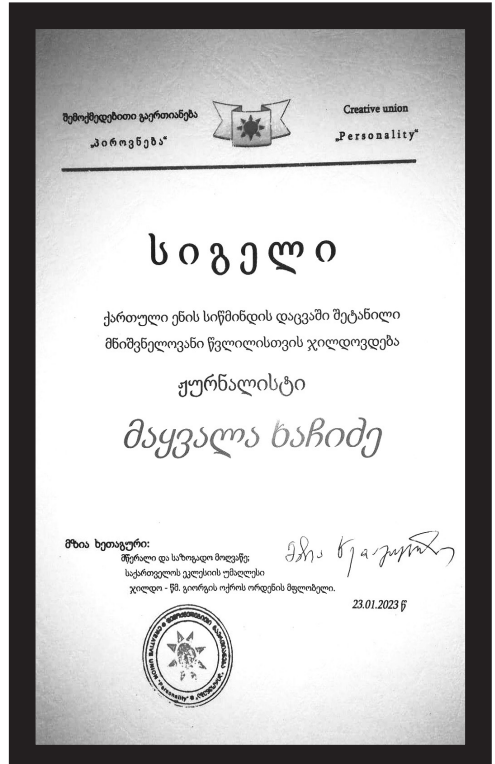 შემოქმედებითი გაერთიანება
„პიროვნება“
Creative union
„Personality“
სიგელი
ქართული ენის სიწმინდის დაცვაში შეტანილი
მნიშვნელოვანი წვლილისთვის ჯილდოვდება
ჟურნალისტი
მაყვალა ხაჩიძე
მზია ხეთაგური:
მწერალი და საზოგადო მოღვაწე;
საქართველოს ეკლესიის უმაღლესი
ჯილდო - წმ. გიორგის ოქროს ორდენის მფლობელი.
23.01.2023 წ
CREATIVE UNION "Personality"